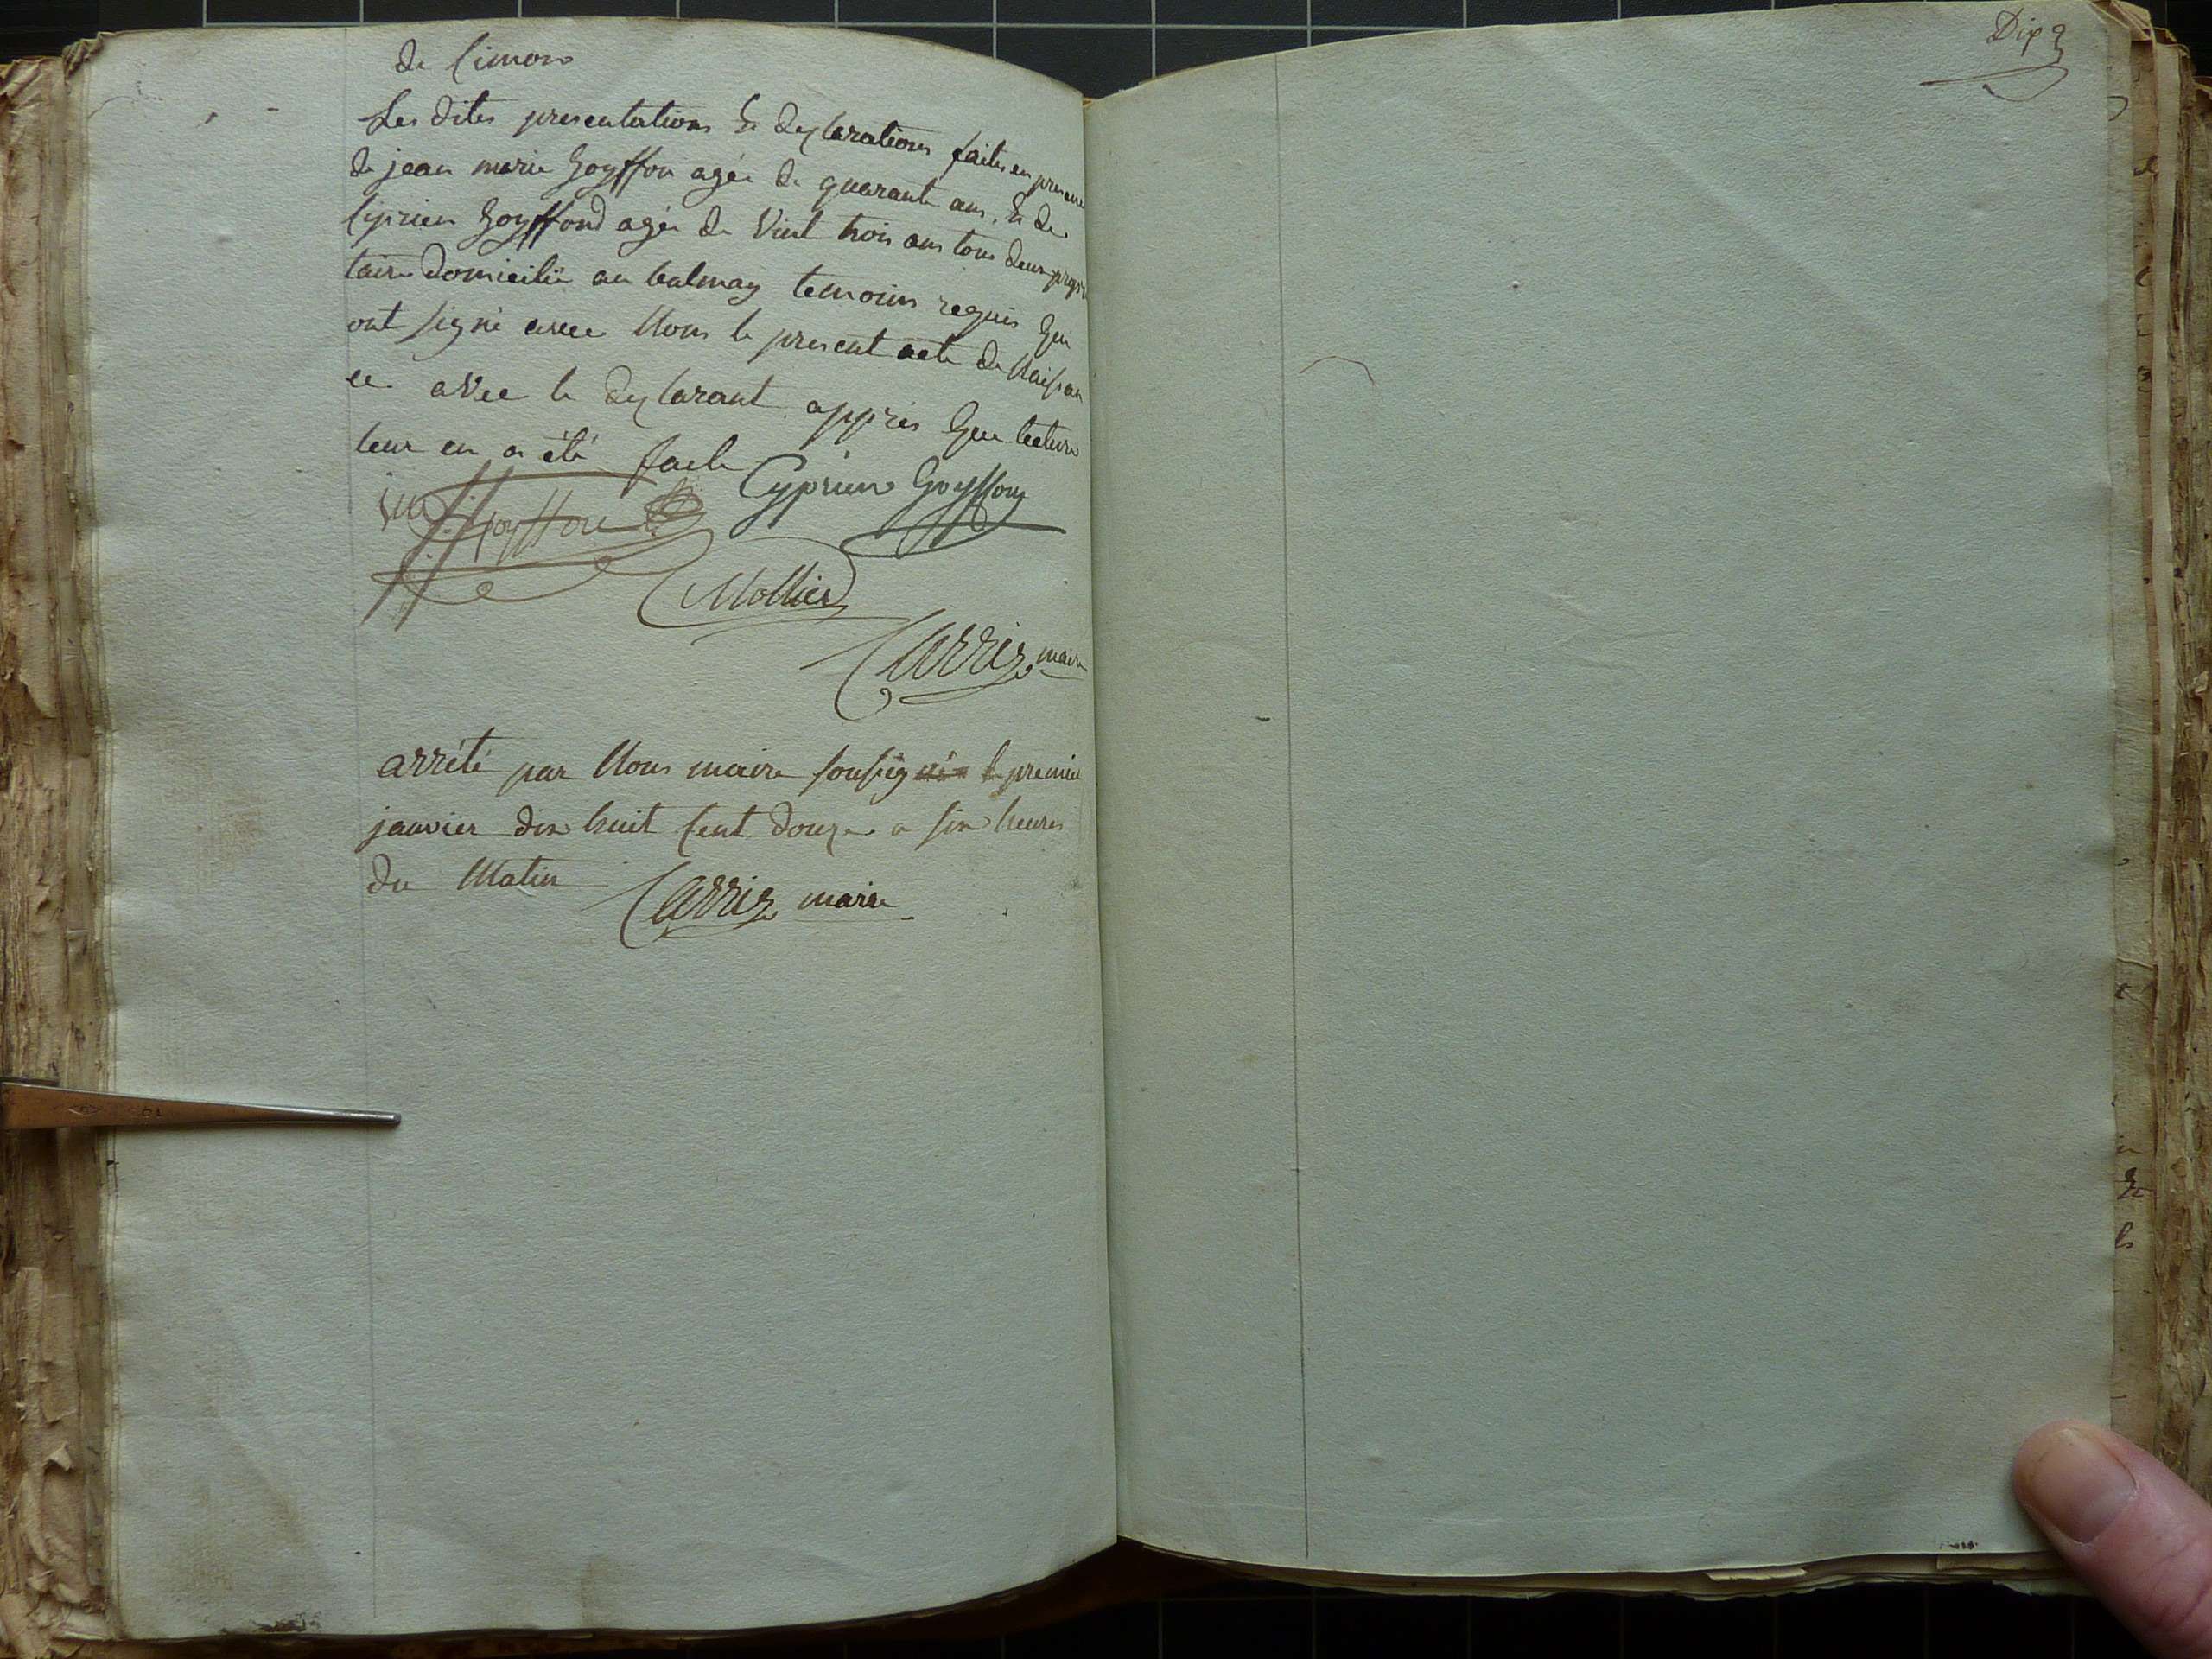 de Simon
Les dites presentations & declarations faites en presence
de jean marie Goyffon agée de quarante ans, & de
Ciprien Goyffond agée de Vint trois ans tous deux proprie
taire domicilié au balmay temoins requis qui
ont signé avec Nous le present acte de Naissan
ce avec le declarant apprés que lecture
leur en a été faite
Goyffon Cyprien Goyffon
Mollier
Carrier maire
arrété par Nous maire soussigné le premier
janvier dix huit Cent douze a six heures
du Matin Carrier maire
Dix